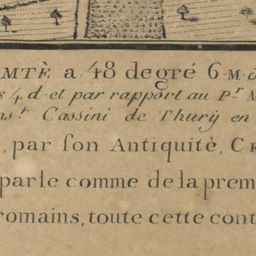 MTÈ a 48 degré 6 M
s 4 d et par rapport au Pr. M
nst Cassini de Thury en
, par son Antiquitè, C
parle comme de la prem
romains, toute cette cont